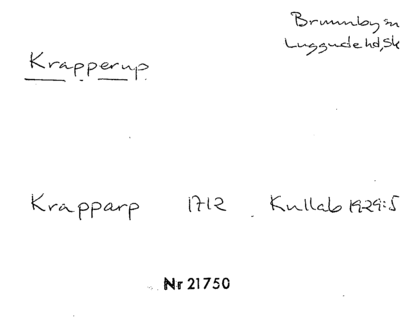 Brunnby sn
Luggude hd, Sk
Krapperup
Krapparp 1712 Kullab 1929:5
Nr 21750